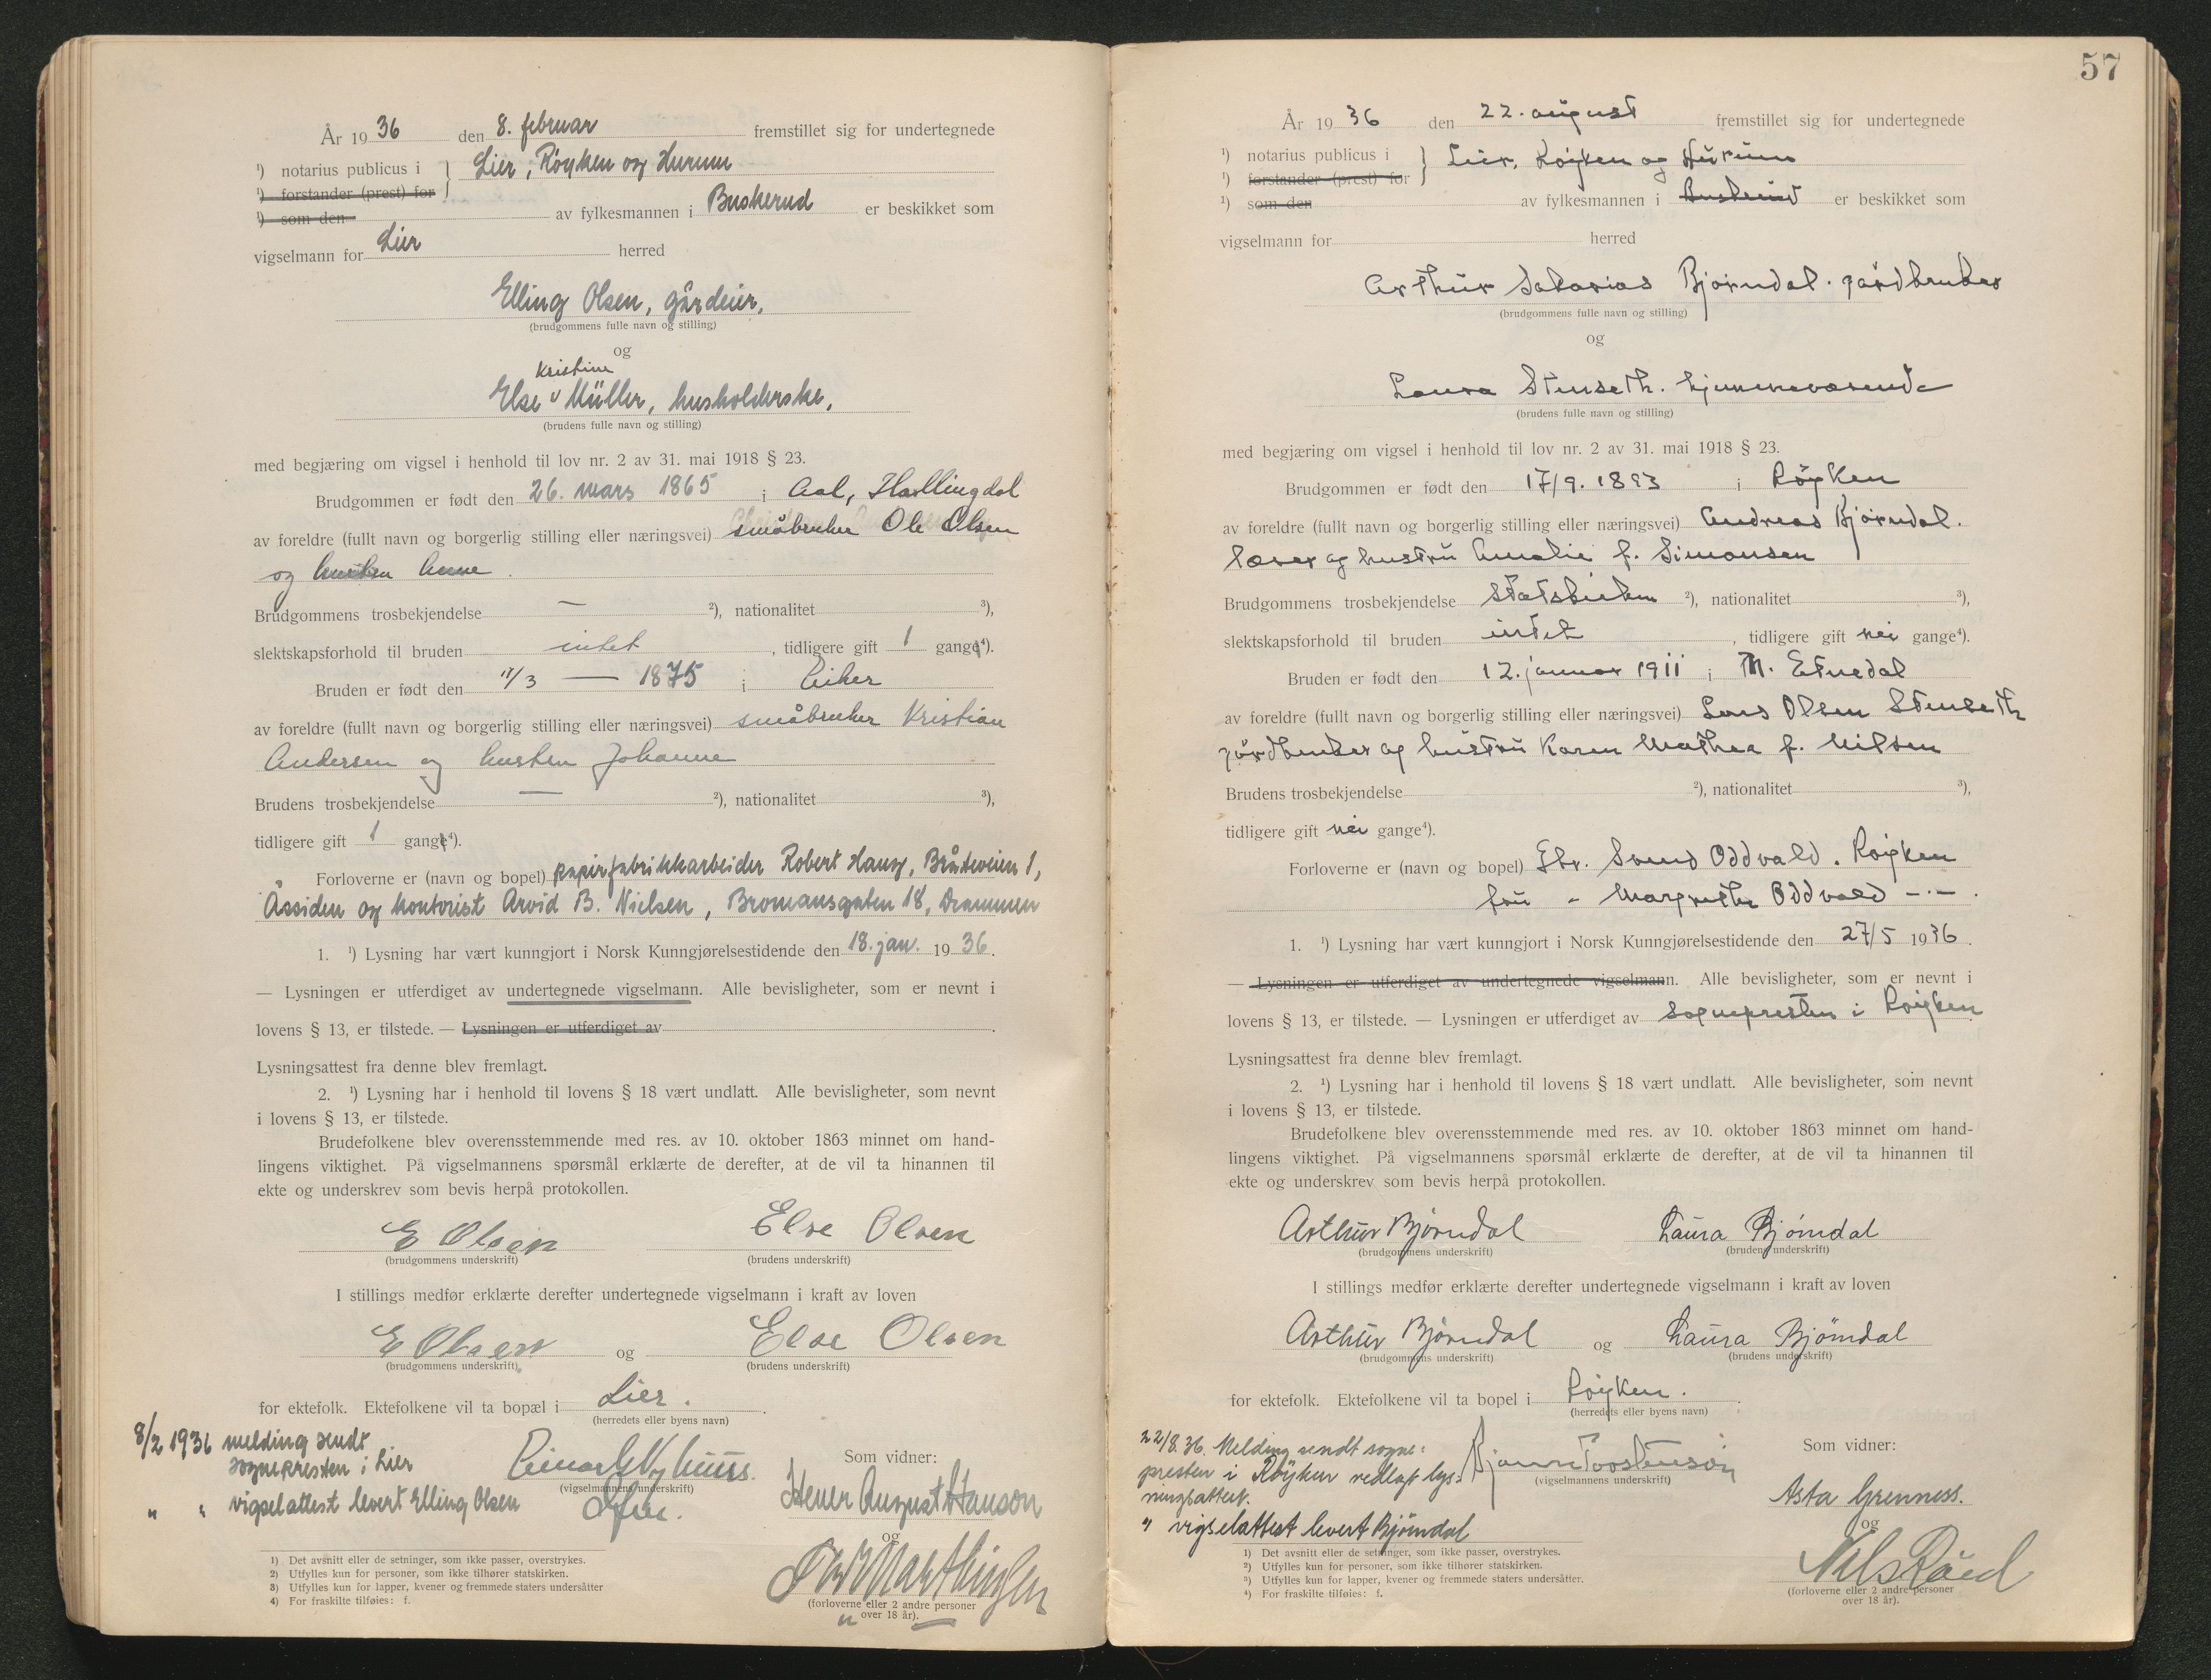 År 19 36 den 8. februar fremstillet sig for undertegnede
¹) notarius publicus i } Lier, Røyken og Hurum
¹) forstander (prest) for
¹) som den av fylkesmannen i Buskerud er beskikket som
vigselmann for Lier herred
Elling Olsen, gårdeier,
(brudgommens fulle navn og stilling)
og
Kristine
Else v Müller, husholderske,
(brudens fulle navn og stilling)
med begjæring om vigsel i henhold til lov nr. 2 av 31. mai 1918 § 23.
Brudgommen er født den 26. mars 1865 i Aal, Hallingdal
av foreldre (fullt navn og borgerlig stilling eller næringsvei) småbruker Ole Olsen
og hustru Anne.
Brudgommens trosbekjendelse — ²), nationalitet ³),
slektskapsforhold til bruden intet, tidligere gift 1 gange⁴).
Bruden er født den 11/3 — 1875 i Eiker
av foreldre (fullt navn og borgerlig stilling eller næringsvei) småbruker Kristian
Andersen og hustru Johanne
Brudens trosbekjendelse — ²), nationalitet ³),
tidligere gift 1 gange⁴).
Forloverne er (navn og bopel) papirfabrikkarbeider Robert Haug, Bråteveien 1,
Åssiden og kontorist Arvid B. Nielsen, Bromansgaten 18, Drammen
1. ¹) Lysning har vært kunngjort i Norsk Kunngjørelsestidende den 18. jan. 19 36.
— Lysningen er utferdiget av undertegnede vigselmann. Alle bevisligheter, som er nevnt i
lovens § 13, er tilstede. — Lysningen er utferdiget av .
Lysningsattest fra denne blev fremlagt.
2. ¹) Lysning har i henhold til lovens § 18 vært undlatt. Alle bevisligheter, som nevnt
i lovens § 13, er tilstede.
Brudefolkene blev overensstemmende med res. av 10. oktober 1863 minnet om hand-
lingens viktighet. På vigselmannens spørsmål erklærte de derefter, at de vil ta hinannen til
ekte og underskrev som bevis herpå protokollen.
E Olsen Else Olsen
(brudgommens underskrift) (brudens underskrift)
I stillings medfør erklærte derefter undertegnede vigselmann i kraft av loven
E Olsen og Else Olsen
(brudgommens underskrift) (brudens underskrift)
for ektefolk. Ektefolkene vil ta bopæl i Lier.
(herredets eller byens navn)
8/2 1936 melding sendt
sognepresten i Lier
" " vigselattest levert Elling Olsen
(vigselmannens underskrift)
Som vidner:
August Hanson
og
(forloverne eller 2 andre personer
over 18 år).
1) Det avsnitt eller de setninger, som ikke passer, overstrykes.
2) Utfylles kun for personer, som ikke tilhører statskirken.
3) Utfylles kun for lapper, kvener og fremmede staters undersåtter
4) For fraskilte tilføies: f.
57
År 19 36 den 22. august fremstillet sig for undertegnede
¹) notarius publicus i } Lier, Røyken og Hurum
¹) forstander (prest) for
¹) som den av fylkesmannen i Buskerud er beskikket som
vigselmann for herred
Arthur Sakarias Bjørndal. gårdbruker
(brudgommens fulle navn og stilling)
og
Laura Stenseth. hjemmeværende
(brudens fulle navn og stilling)
med begjæring om vigsel i henhold til lov nr. 2 av 31. mai 1918 § 23.
Brudgommen er født den 17/9. 1893 i Røyken
av foreldre (fullt navn og borgerlig stilling eller næringsvei) Andreas Bjørndal.
lærer og hustru Amalie f. Simonsen
Brudgommens trosbekjendelse Statskirken ²), nationalitet ³),
slektskapsforhold til bruden intet, tidligere gift nei gange⁴).
Bruden er født den 12. januar 1911 i N. Etnedal
av foreldre (fullt navn og borgerlig stilling eller næringsvei) Lars Olsen Stenseth
gårdbruker og hustru Karen Mathea f. Nilsen
Brudens trosbekjendelse ²), nationalitet ³),
tidligere gift nei gange⁴).
Forloverne er (navn og bopel) Hr. Svend Oddvald. Røyken
fru - Margrethe Oddvald -·-.
1. ¹) Lysning har vært kunngjort i Norsk Kunngjørelsestidende den 27/5 1936.
— Lysningen er utferdiget av undertegnede vigselmann. Alle bevisligheter, som er nevnt i
lovens § 13, er tilstede. — Lysningen er utferdiget av Sognepresten i Røyken
Lysningsattest fra denne blev fremlagt.
2. ¹) Lysning har i henhold til lovens § 18 vært undlatt. Alle bevisligheter, som nevnt
i lovens § 13, er tilstede.
Brudefolkene blev overensstemmende med res. av 10. oktober 1863 minnet om hand-
lingens viktighet. På vigselmannens spørsmål erklærte de derefter, at de vil ta hinannen til
ekte og underskrev som bevis herpå protokollen.
Arthur Bjørndal Laura Bjørndal
(brudgommens underskrift) (brudens underskrift)
I stillings medfør erklærte derefter undertegnede vigselmann i kraft av loven
Arthur Bjørndal og Laura Bjørndal
(brudgommens underskrift) (brudens underskrift)
for ektefolk. Ektefolkene vil ta bopel i Røyken.
(herredets eller byens navn)
22/8.36. Melding sendt sogne-
presten i Røyken vedlagt lys-
ningsattest.
" vigselattest levert Bjørndal
Bjarne Torstenson
(vigselmannens underskrift)
Som vidner:
Asta Grenness.
og
Nils
(forloverne eller 2 andre personer
over 18 år).
1) Det avsnitt eller de setninger, som ikke passer, overstrykes.
2) Utfylles kun for personer, som ikke tilhører statskirken.
3) Utfylles kun for lapper, kvener og fremmede staters undersåtter.
4) For fraskilte tilføies: f.